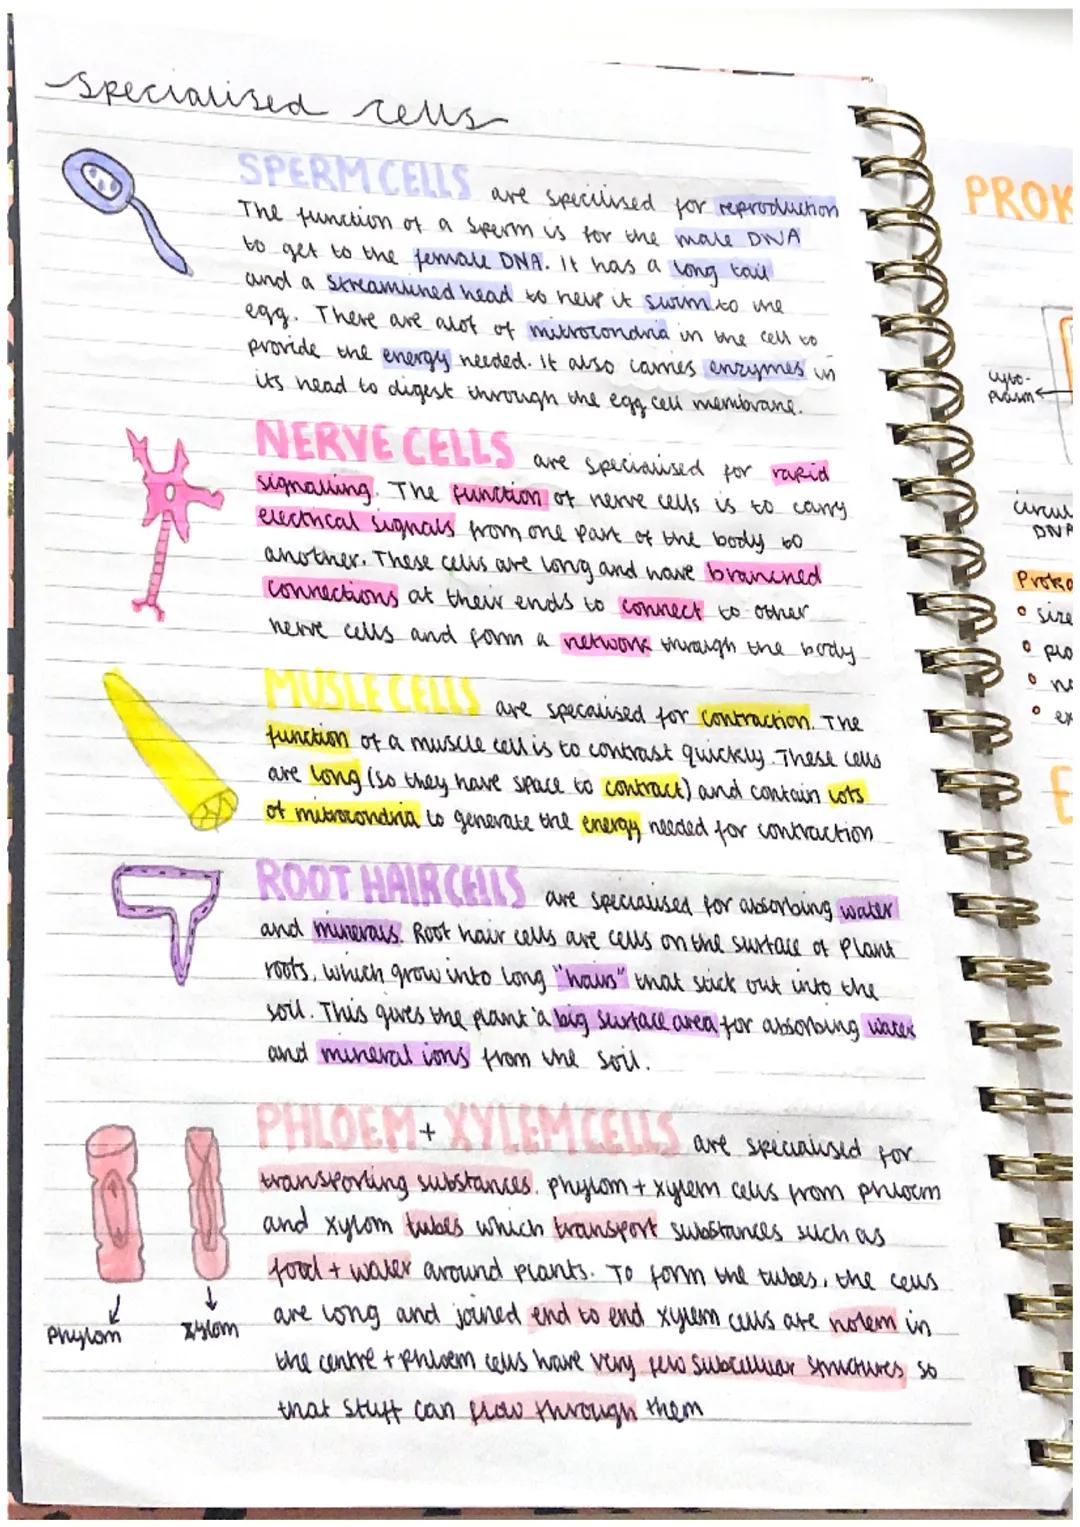 specialised cells
SPERM CELLS are specilised for reproduction
The function of a sperm is for the male DNA
to get to the female DNA. It has a long tail
and a streamlined head to help it swim to the
egg. There are alot of mitrocondria in the cell to
provide the energy needed. It also carries enzymes in
its head to digest through the egg cell membrane.
NERVE CELLS are specialised for rapid
signalling. The function of nerve cells is to carry
electrical signals from one part of the body to
another. These cells are long and have branched
connections at their ends to connect to other
nerve cells and form a network through the body
MUSLE CELLS are specalised for contraction. The
function of a muscle cell is to contrast quickly. These cells
are long (so they have space to contract) and contain lots
of mitrocondria to generate the energy needed for contraction
ROOT HAIR CELLS are specialised for absorbing water
and minerals. Root hair cells are cells on the surface of plant
roots, which grow into long "hairs" that stick out into the
soil. This gives the plant a big surface area for absorbing water
and mineral ions from the soil.
PHLOEM + XYLEM CELLS are specialised for
transporting substances. phylom + xylem cells from phloem
and xylom tubes which transport substances such as
food + water around plants. To form the tubes, the cells
are long and joined end to end xylem cells are holem in
the centre + phloem cells have very few subcellular structures so
that stuff can flow through them
Phylom
Xylom
PROK
cyto-
plasm
circul
DNA
Proka
size
pla
no
ex
E